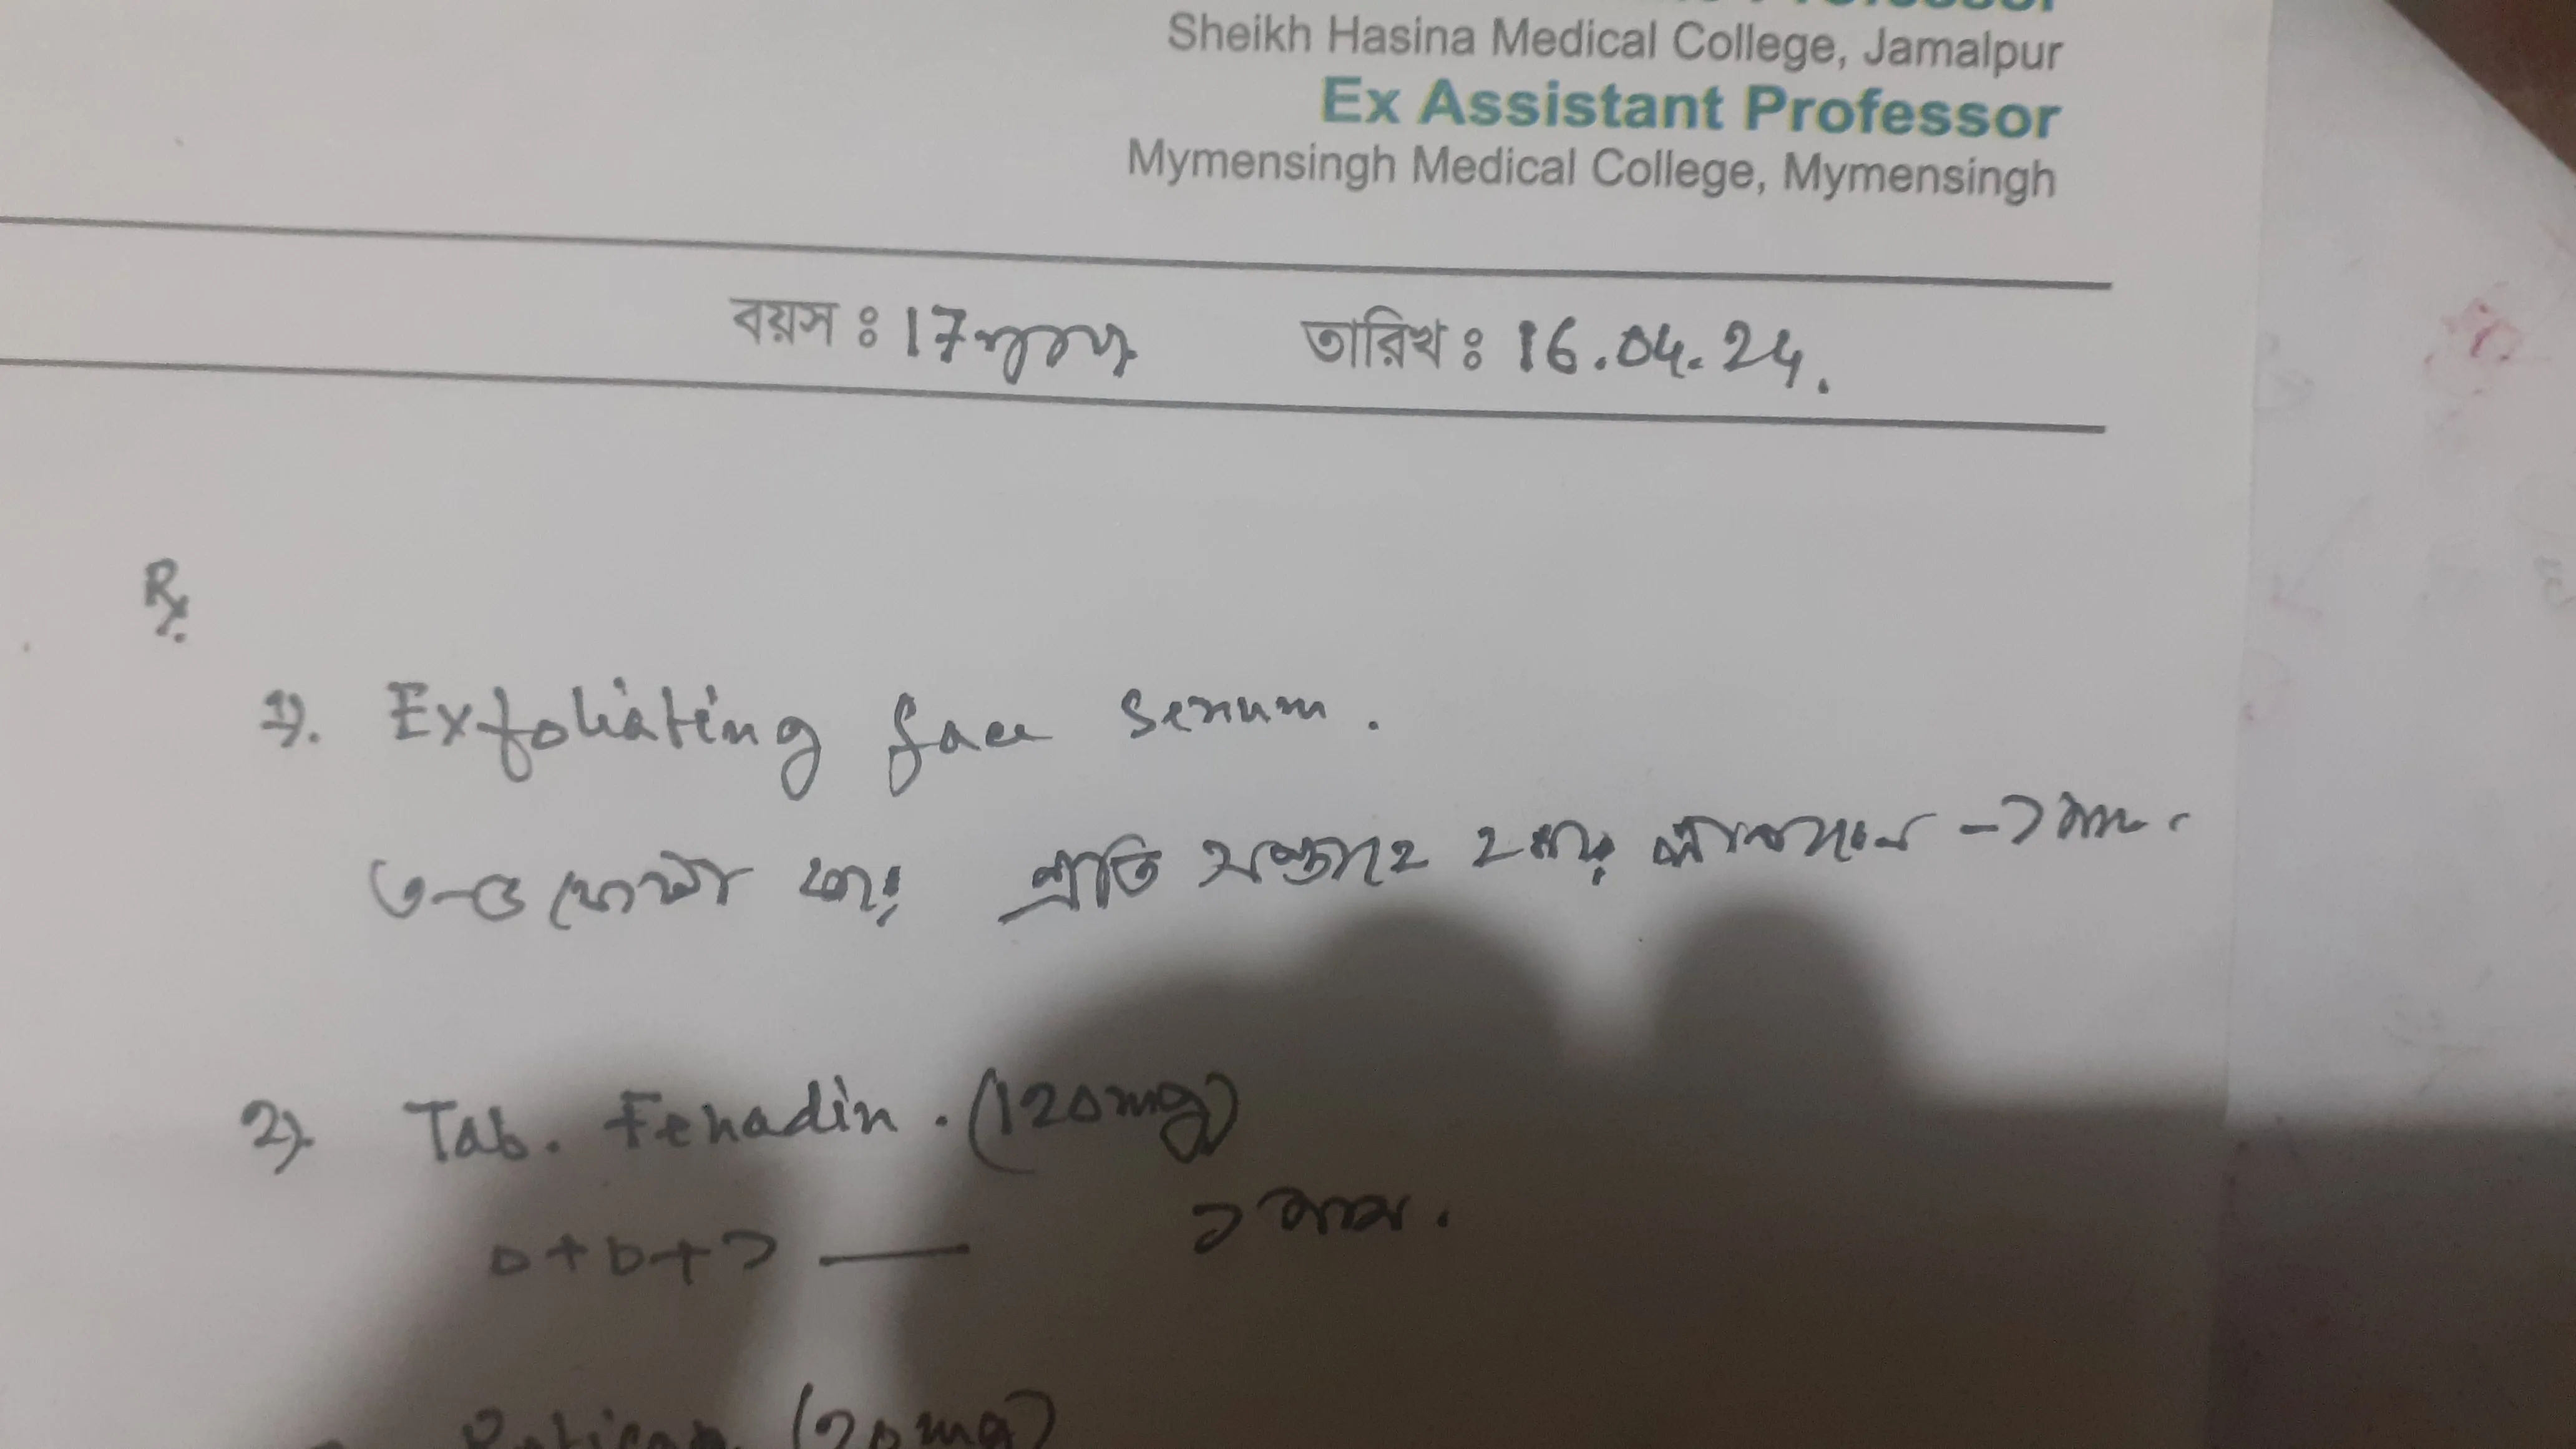 Sheikh Hasina Medical College, Jamalpur
Ex Assistant Professor
Mymensingh Medical College, Mymensingh
বয়স ঃ 17 তারিখ ঃ 16.04.24.
Rx
1). Exfoliating face serum.
৩-৪ ফোটা প্রতি সপ্তাহে ২
2) Tab. Fenadin. (120mg)
০+০+১ — ১ মাস.
(20mg)